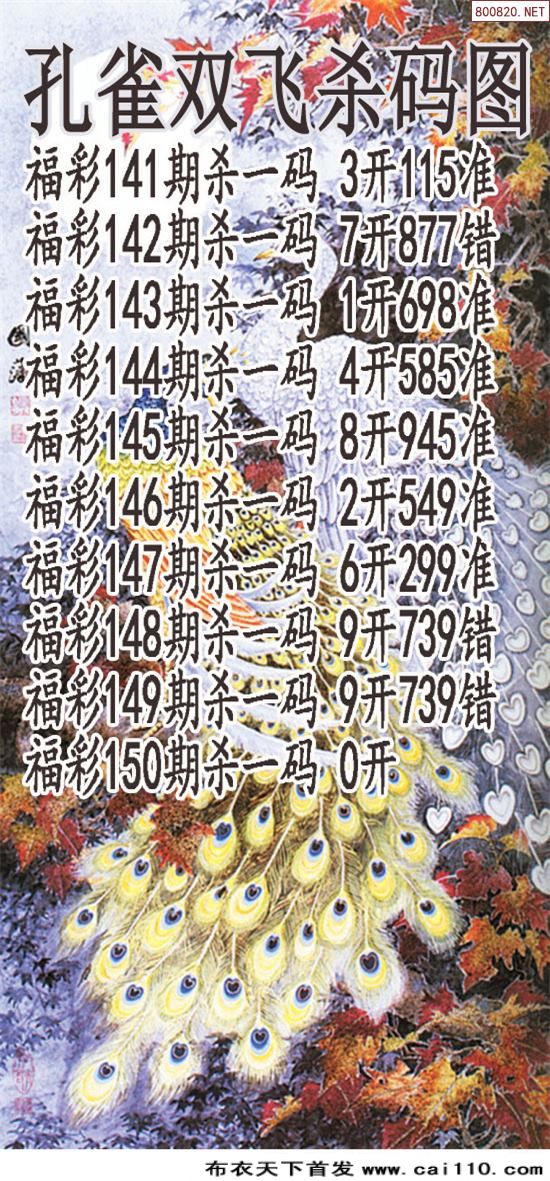 800820.NET
孔雀双飞杀码图
福彩141期杀一码 3开115准
福彩142期杀一码 7开877错
福彩143期杀一码 1开698准
福彩144期杀一码 4开585准
福彩145期杀一码 8开945准
福彩146期杀一码 2开549准
福彩147期杀一码 6开299准
福彩148期杀一码 9开739错
福彩149期杀一码 9开739错
福彩150期杀一码 0开
布衣天下首发 www.cai110.com